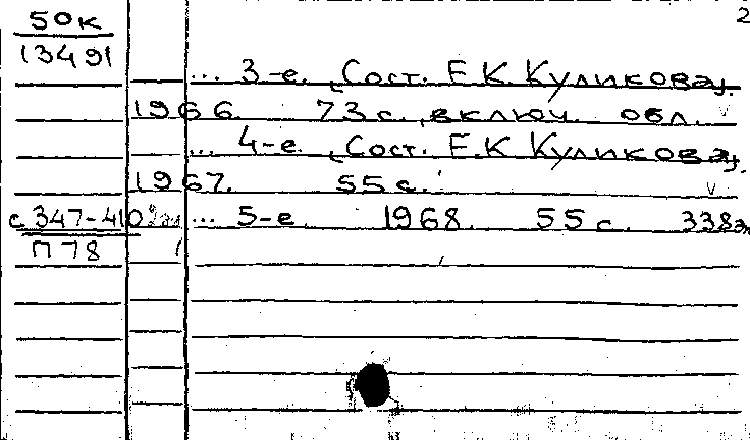 50к 2
13491
... 3-е. [Сост. Е.К. Куликова].
1966. 73 с., включ. обл.
... 4-е. [Сост. Е.К. Куликова].
1967. 55 с.
с 347-410 ... 5-е 1968. 55 с. 338э
П 78